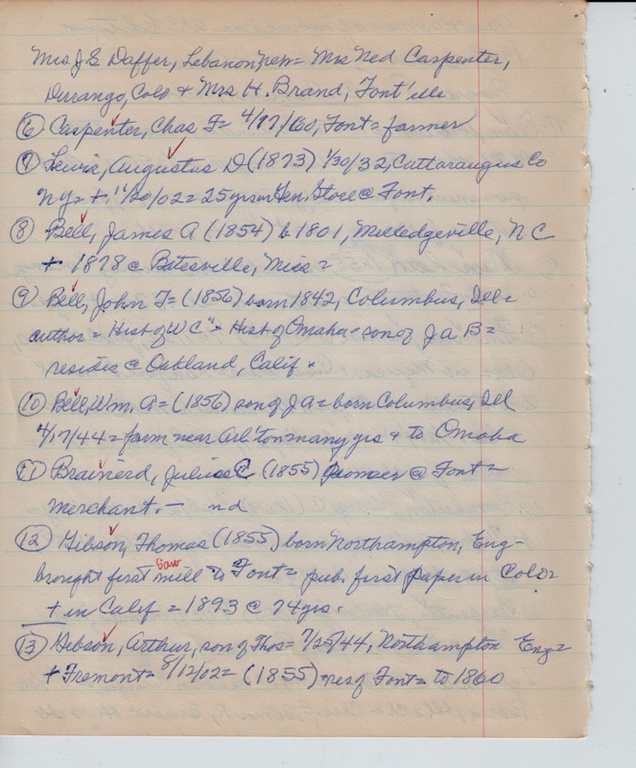 Mrs J E Daffer, Lebanon, = Mrs Ned Carpenter,
Durango, Colo & Mrs H. Brand, Font'elle
⑥ Carpenter, Chas F = 4/17/60, Font = farmer
⑦ Lewis, Augustus D (1873) 1/30/32, Cattaraugus Co
NY = + 11/20/02 = 25 yrs in Gen. Store @ Font.
⑧ Bell, James A (1854) b 1801, Milledgeville, N C
+ 1878 @ Batesville, Miss =
⑨ Bell, John T = (1856) born 1842, Columbus, Ill =
author = Hist of W C "= Hist of Omaha = son of J A B =
resides @ Oakland, Calif
⑩ Bell, Wm. A = (1856) son of J A = born Columbus, Ill
4/17/44 = farm near Arl'ton = many yrs & to Omaha
⑪ Brainerd, Julius C (1855) pioneer @ Font =
merchant. — nd
⑫ Gibson, Thomas (1855) born Northampton, Eng =
brought first saw mill to Font = pub. first paper in Colo =
+ in Calif = 1893 @ 74 yrs.
⑬ Gibson, Arthur, son of Thos = 7/25/44, Northampton Eng =
+ Fremont = 8/12/02 = (1855) res of Font = to 1860